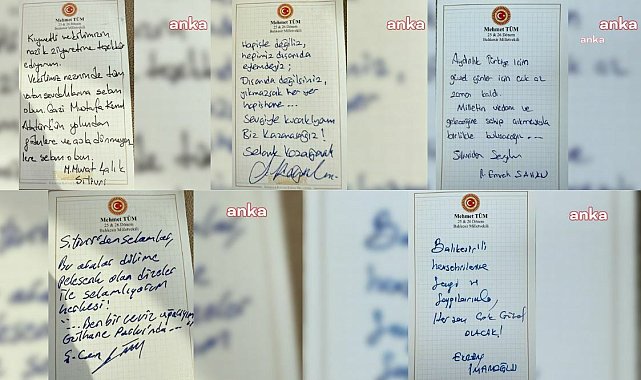 anka
Mehmet TÜM
25 & 26 Dönem
Balıkesir Milletvekili
Kıymetli vekilimizin
nazik ziyaretine teşekkür
ediyorum.
Vekilimiz nezninde tüm
vatan sevdalılarına selam
olsun. Gazi Mustafa Kemal
Atatürk'ün yolundan
gidenlere ve asla dönmeyen
lere selam olsun.
M. Murat Çalık
Silivri
anka
Mehmet TÜM
25 & 26 Dönem
Balıkesir Milletvekili
Hapiste değiliz,
hepimiz dışarıda
Dışarıda değilsiniz,
yıkmazsak her yer
hapishane...
Sevgiyle kucaklıyorum
Biz Kazanacağız!
anka
anka
Mehmet TÜM
25 & 26 Dönem
Balıkesir Milletvekili
Aydınlık Türkiye için
güzel günler için çok az
zaman kaldı.
Milletin vicdanı ve
geleceğine sahip çıkmasıyla
birlikte başaracağız...
R. Emrah ŞAHAN
anka
Mehmet TÜM
25 & 26 Dönem
Balıkesir Milletvekili
Silivri'den selamlar,
Bu aralar dilime
pelesenk olan dizeler
ile selamlıyorum
herkesi!
"... Ben bir ceviz ağacıyım
Gülhane Parkı'nda..."
anka
Mehmet TÜM
25 & 26 Dönem
Balıkesir Milletvekili
Balıkesirli
hemşehrilerime
Sevgi ve
Saygılarımla,
Her şey Çok Güzel
OLACAK!
Ekrem
İMAMOĞLU